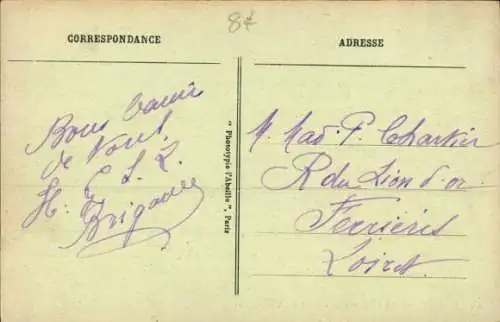 8f
CORRESPONDANCE
ADRESSE
Bons baisers
de Nous
H. Brigault
"Phototypie l'Abeille", Paris
M. Mad. P. Chartier
R du Lion d'or
Ferrières
Loiret